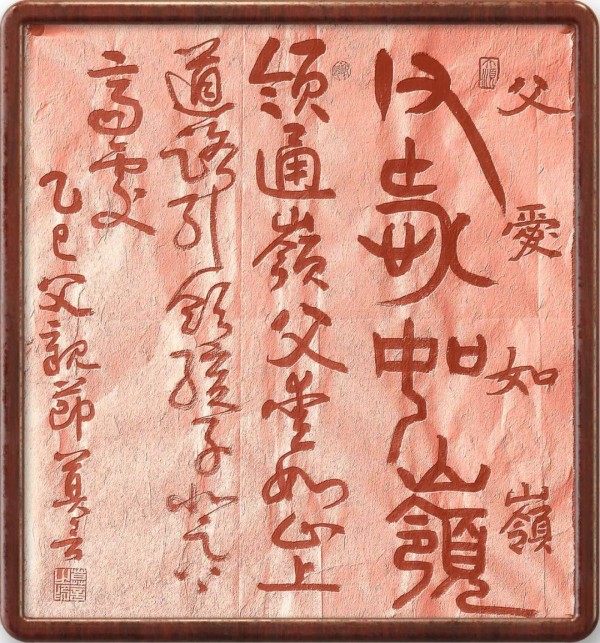 父愛如嶺
父愛如嶺
領通嶺父愛如山上
道路引領孩子
高處
乙巳父親節莫言